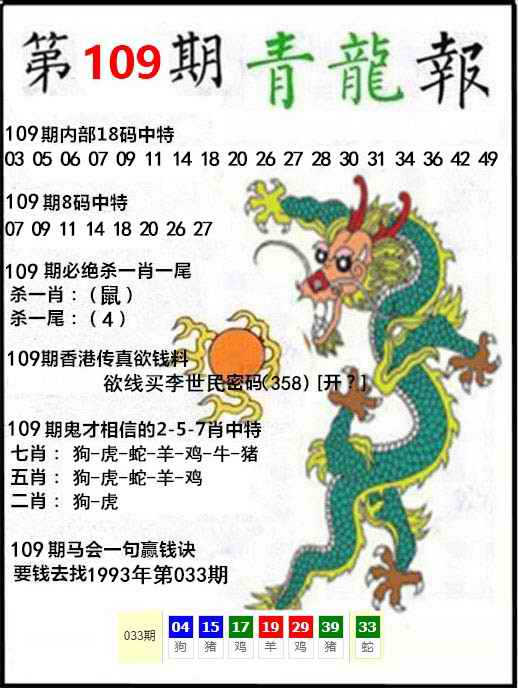 第109期青龍報
109期内部18码中特
03 05 06 07 09 11 14 18 20 26 27 28 30 31 34 36 42 49
109期8码中特
07 09 11 14 18 20 26 27
109 期必绝杀一肖一尾
杀一肖：（鼠）
杀一尾：（4）
109期香港传真欲钱料
欲线买李世民密码(358) [开？]
109期鬼才相信的2-5-7肖中特
七肖： 狗-虎-蛇-羊-鸡-牛-猪
五肖： 狗-虎-蛇-羊-鸡
二肖： 狗-虎
109期马会一句赢钱诀
要钱去找1993年第033期
033期 04 15 17 19 29 39 33
狗 猪 鸡 羊 鸡 猪 蛇